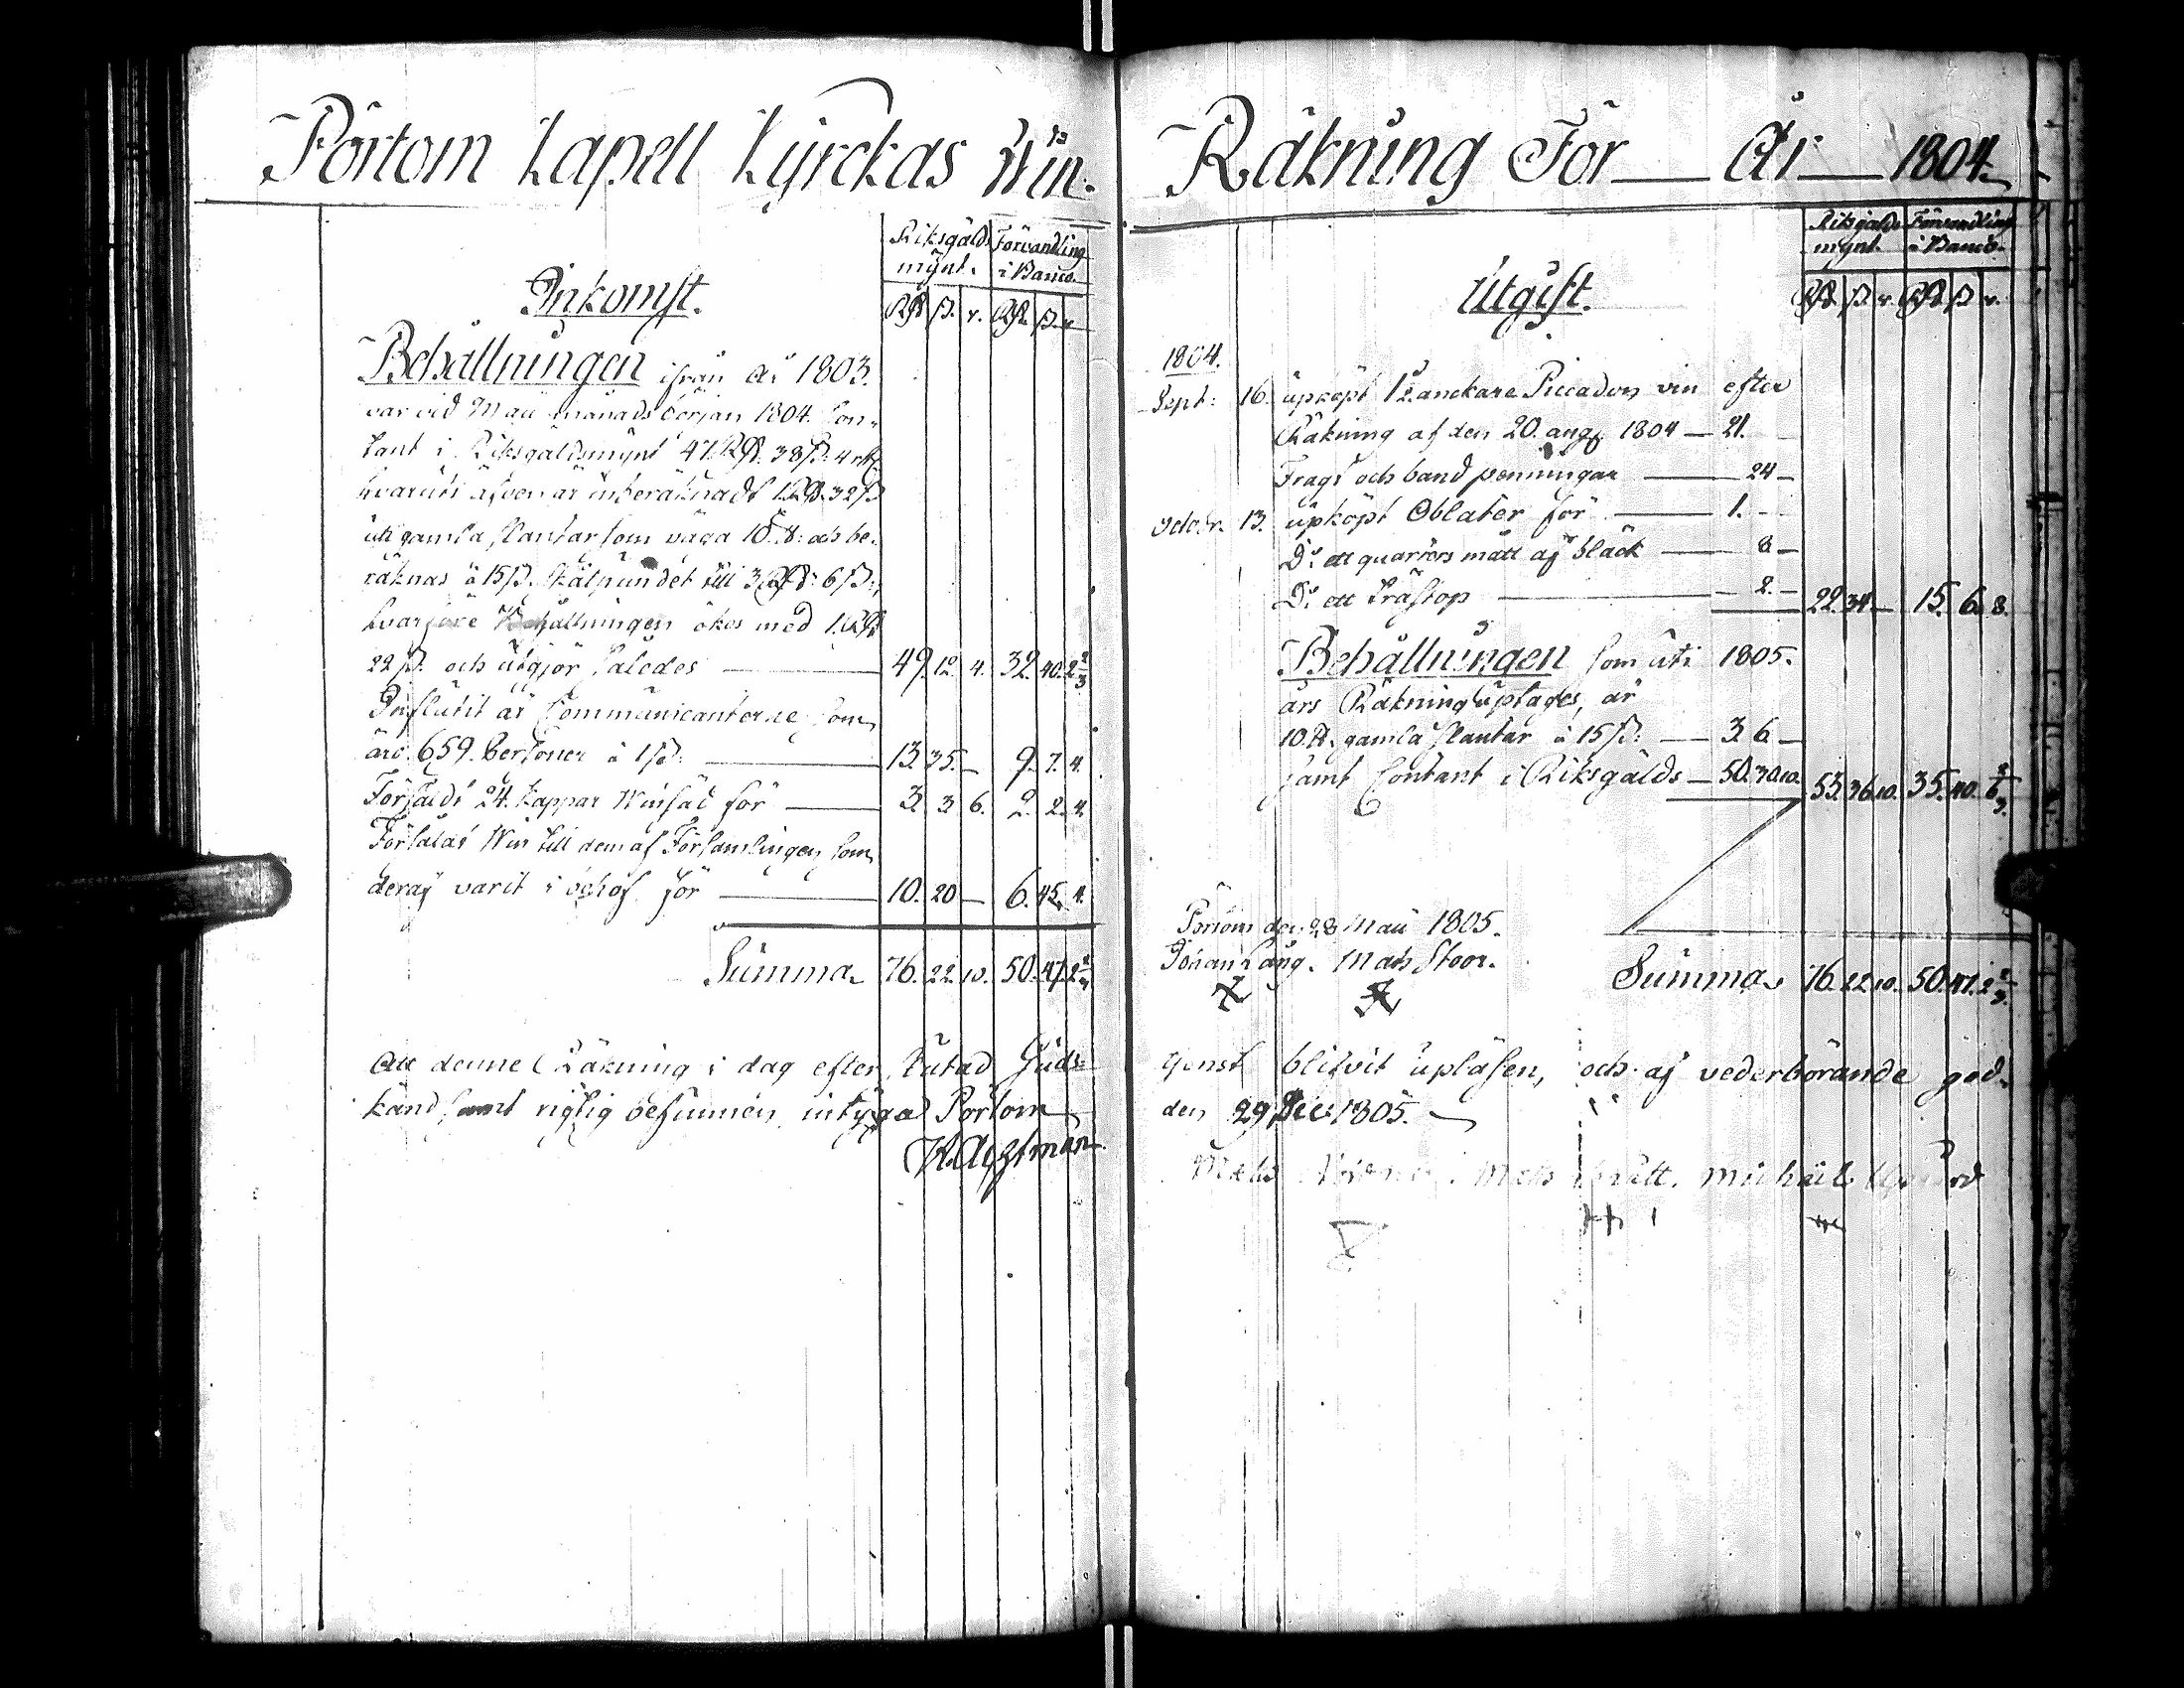 Pörtom Kapell Kyrckas Win-
Inkomst.
Riksgälds mynt. Förvandling i Banco.
Rd ß. r. Rd ß. r.
Behållningen ifrån år 1803.
var vid Maii månads början 1804. Con-
tant i Riksgäldsmynt 47 Rd: 38 ß: 4 r
hvaruti äfven är inberäknadt 1 Rd. 32 ß
uti gamla slantar som väga 10 ℔: och be-
räknas à 15 ß. Skålpundet till 3 Rd: 6 ß:,
hvarföre Behållningen ökes med 1. Rd
22 ß. och utgjör således 49. 12. 4. 32. 40. 2 2/3
Influtit är Communicanterne som
äro 659. Personer à 1 ß: 13. 35. — 9. 7. 4.
Försåldt 24. kappar Winsäd för 3. 3. 6. 2. 2. 4.
Försåldt Win till dem af Församlingen som
deraf varit i behof för 10. 20 — 6. 45. 4.
Summa 76. 22. 10. 50. 47. 2 2/3
Att denne Räkning i dag efter slutad Guds-
känd samt rigtig befunnen intygar Pörtom
Räkning För År 1804.
Utgift.
Riksgälds mynt. Förvandling i Banco.
Rd ß. r. Rd ß. r.
1804.
Sept: 16. upköpt 1/2 anckare Piccadon vin efter
Räkning af den 20. aug. 1804 — 21. —
Fragt och band penningar — 24 —
Octobr. 13. upköpt Oblater för — 1. —
Do ett quarters mått af bläck — 8 —
Do ett Trästop — 2. — 22. 34. — 15. 6. 8.
Behållningen som uti 1805.
års Räkning uptages, är
10 ℔. gamla slantar à 15 ß: — 3. 6 —
samt Contant i Riksgälds — 50. 30. 10. 53. 36. 10. 35. 40. 6 2/3
Pörtom den 28 Maii 1805.
Johan Lång. Mats Stoor.
Summa 76. 22. 10. 50. 47. 2 2/3
tjenst blifvit upläsen, och af vederbörande god-
den 29 Dec 1805.
Mats Mats Michael